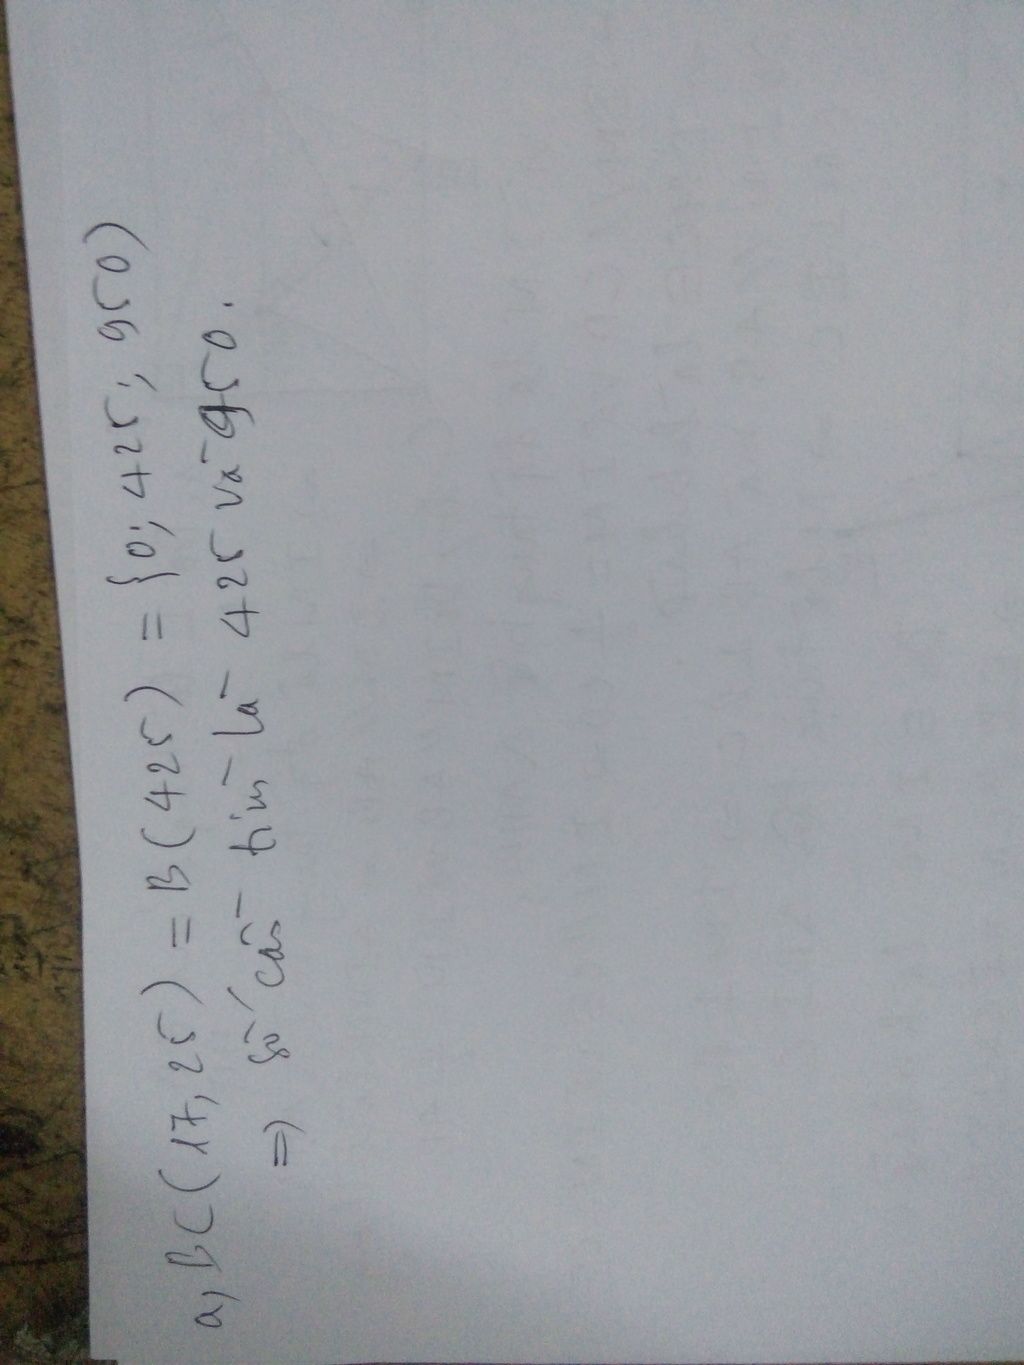 a, BC(17, 25) = B(425) = {0; 425; 950)
=> số cần tìm là 425 và 950.